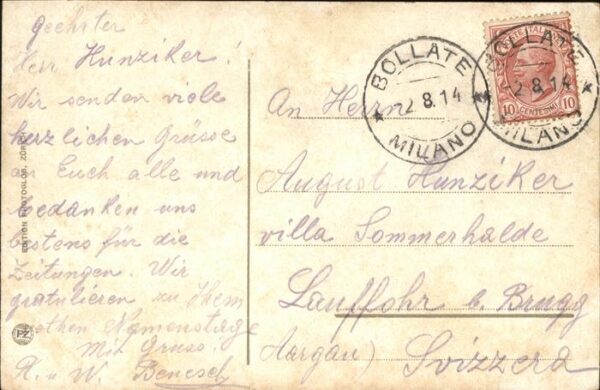 Geehrter
Herr Hunziker!
Wir senden viele
herzlichen Grüsse
an Euch alle und
bedanken uns
bestens für die
Zeitungen. Wir
gratulieren zu Ihem
Namenstage
Mit Gruss!
R. u W. Benesch
EDITION PHOTOGLOB, ZÜRICH
PZ
BOLLATE
2.8.14
MILANO
BOLLATE
2.8.14
MILANO
10 10
CENTESIMI
An Herrn
August Hunziker
villa Sommerhalde
Lauffohr b. Brugg
Aargau) Svizzera